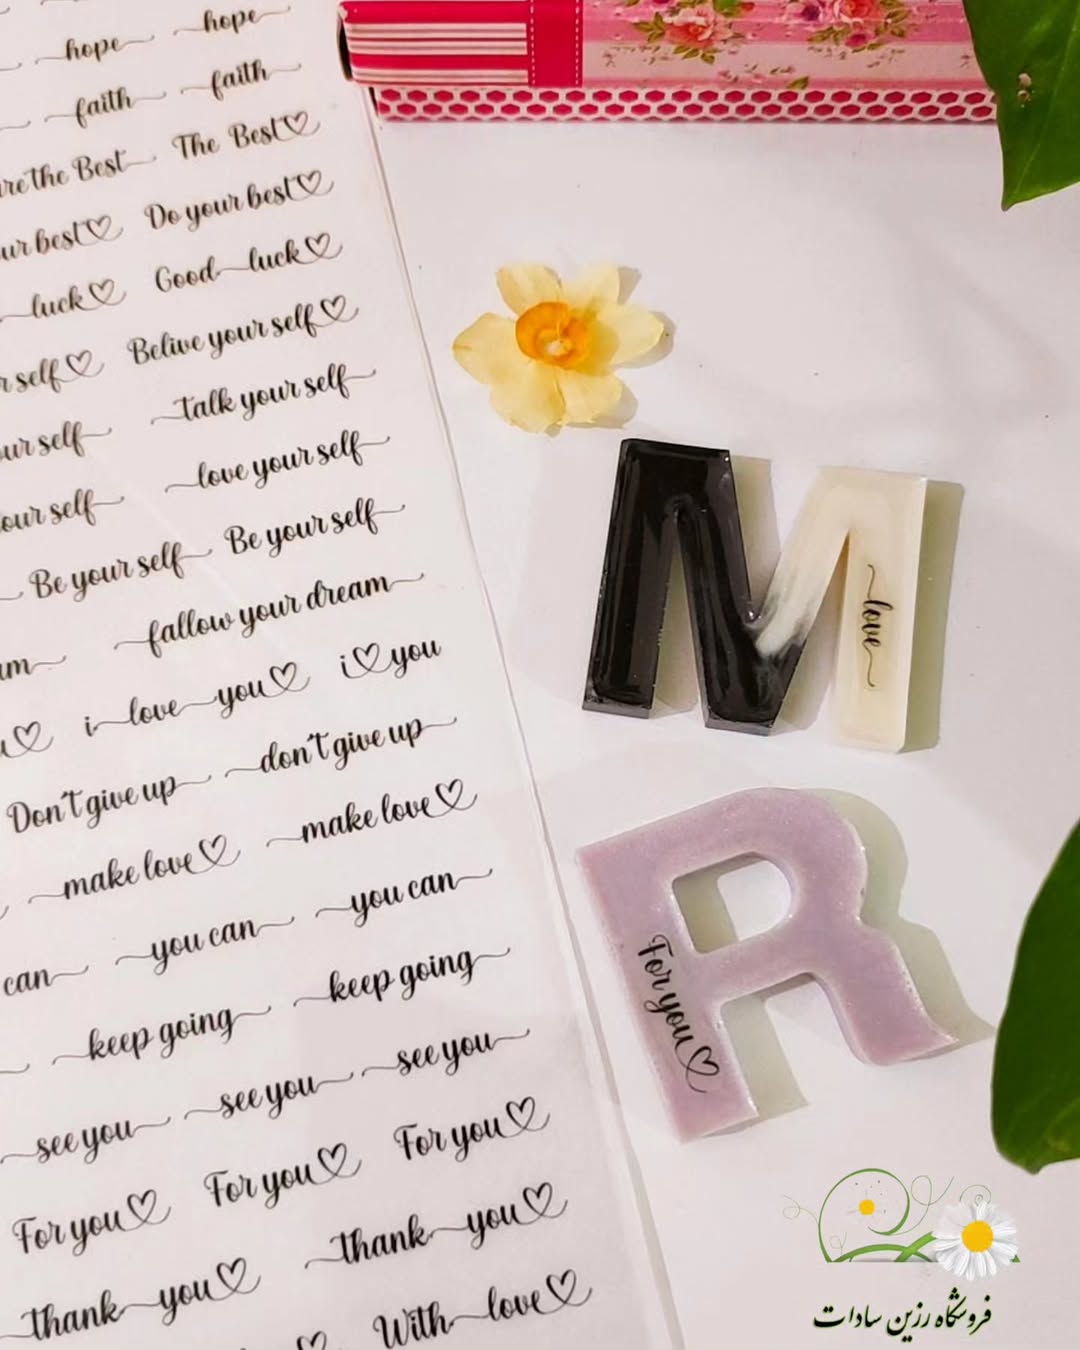 hope hope
faith faith
are the Best The Best
your best Do your best
luck Good luck
self Belive your self
your self talk your self
your self love your self
Be your self Be your self
fallow your dream
i love you i you
Don't give up don't give up
make love make love
can you can you can
keep going keep going
see you see you see you
For you For you For you
thank you thank you
With love
love
For you
فروشگاه رزین سادات